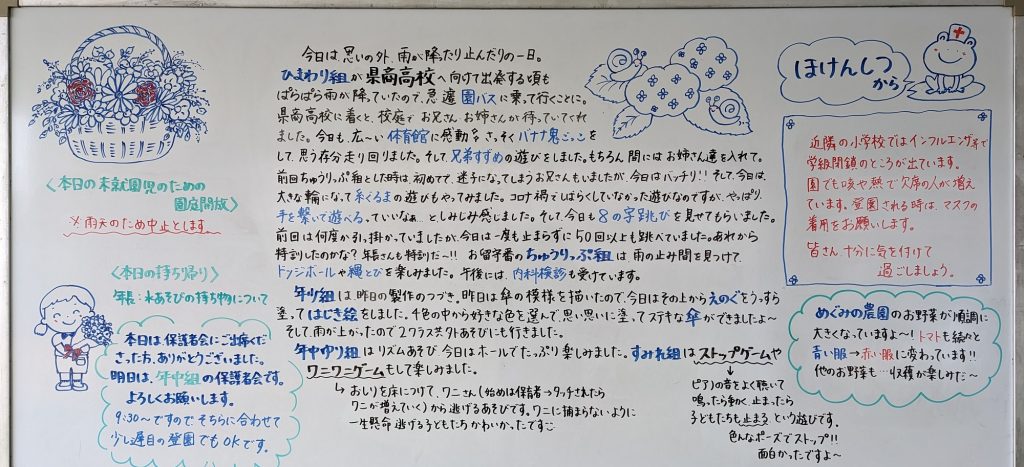 <本日の未就園児のための
園庭開放>
※雨天のため中止とします。
<本日の持ち帰り>
年長:水あそびの持ち物について
本日は保護者会にご出席くだ
さった方、ありがとうございました。
明日は、年中組の保護者会です。
よろしくお願いします。
9:30〜ですので、そちらに合わせて
少し遅目の登園でもOKです。
今日は、思いの外、雨が降たり止んだりの一日。
ひまわり組が県商高校へ向けて出発する頃も
ぱらぱら雨が降っていたので、急遽園バスに乗って行くことに。
県商高校に着くと、校庭でお兄さんお姉さんが待っていてくれ
ました。今日も、広〜い体育館に感動♪さっそくバナナ鬼ごっこを
して、思う存分走り回りました。そして兄弟すずめの遊びをしました。もちろん間にはお姉さん達を入れて。
前回ちゅうりっぷ組とした時は、初めてで、迷子になってしまうお兄さんもいましたが、今日はバッチリ!!そして、今日は、
大きな輪になって糸ぐるまの遊びもやってみました。コロナ禍でしばらくしていなかった遊びなのですが、やっぱり、
手を繋いで遊べるっていいなぁ、としみじみ感じました。そして、今日も8の字跳びを見せてもらいました。
前回は何度か引っ掛かっていましたが、今日は一度も止まらずに50回以上も跳べていました。あれから
特訓したのかな?年長さんも特訓だ〜!! お留守番のちゅうりっぷ組は、雨の止み間を見つけて、
ドッジボールや縄とびを楽しみました。午後には、内科検診も受けています。
年少組は、昨日の製作のつづき。昨日は傘の模様を描いたので、今日はその上からえのぐをうっすら
塗ってはじき絵をしました。千色の中から好きな色を選んで、思い思いに塗ってステキな傘ができましたよ〜
そして、雨が上がったので2クラス共外あそびにも行きました。
年中ゆり組はリズムあそび、今日はホールでたっぷり楽しみました。すみれ組はストップゲームや
ワニワニゲームもして楽しみました。
↳おしりを床につけて、ワニさん(始めは保育者→タッチされたら
ワニが増えていく)から逃げるあそびです。ワニに捕まらないように
一生懸命逃げる子どもたちかわいかったです
↓
ピアノの音をよく聴いて
鳴ったら動く、止まったら
子どもたちも止まるという遊びです。
色んなポーズでストップ!!
面白かったですよ〜
ほけんしつ
から
近隣の小学校ではインフルエンザで
学級閉鎖のところが出ています。
園でも咳や熱で欠席の人が増え
ています。登園される時は、マスクの
着用をお願いします。
皆さん、十分に気を付けて
過ごしましょう。
めぐみの農園のお野菜が順調に
大きくなっていますよ〜!トマトも続々と
青い服→赤い服に変わっています!!
他のお野菜も…収穫が楽しみだ〜